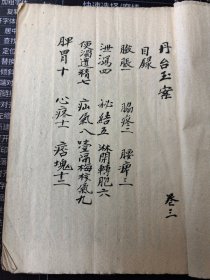 丹台玉案
卷三
目錄
臌脹一 腸痧二 腰痺三
泄瀉四 秘結五 淋閉轉胞六
便濁遺精七 疝氣八 噎膈梅核氣九
脾胃十 心疼十一 痞塊十二